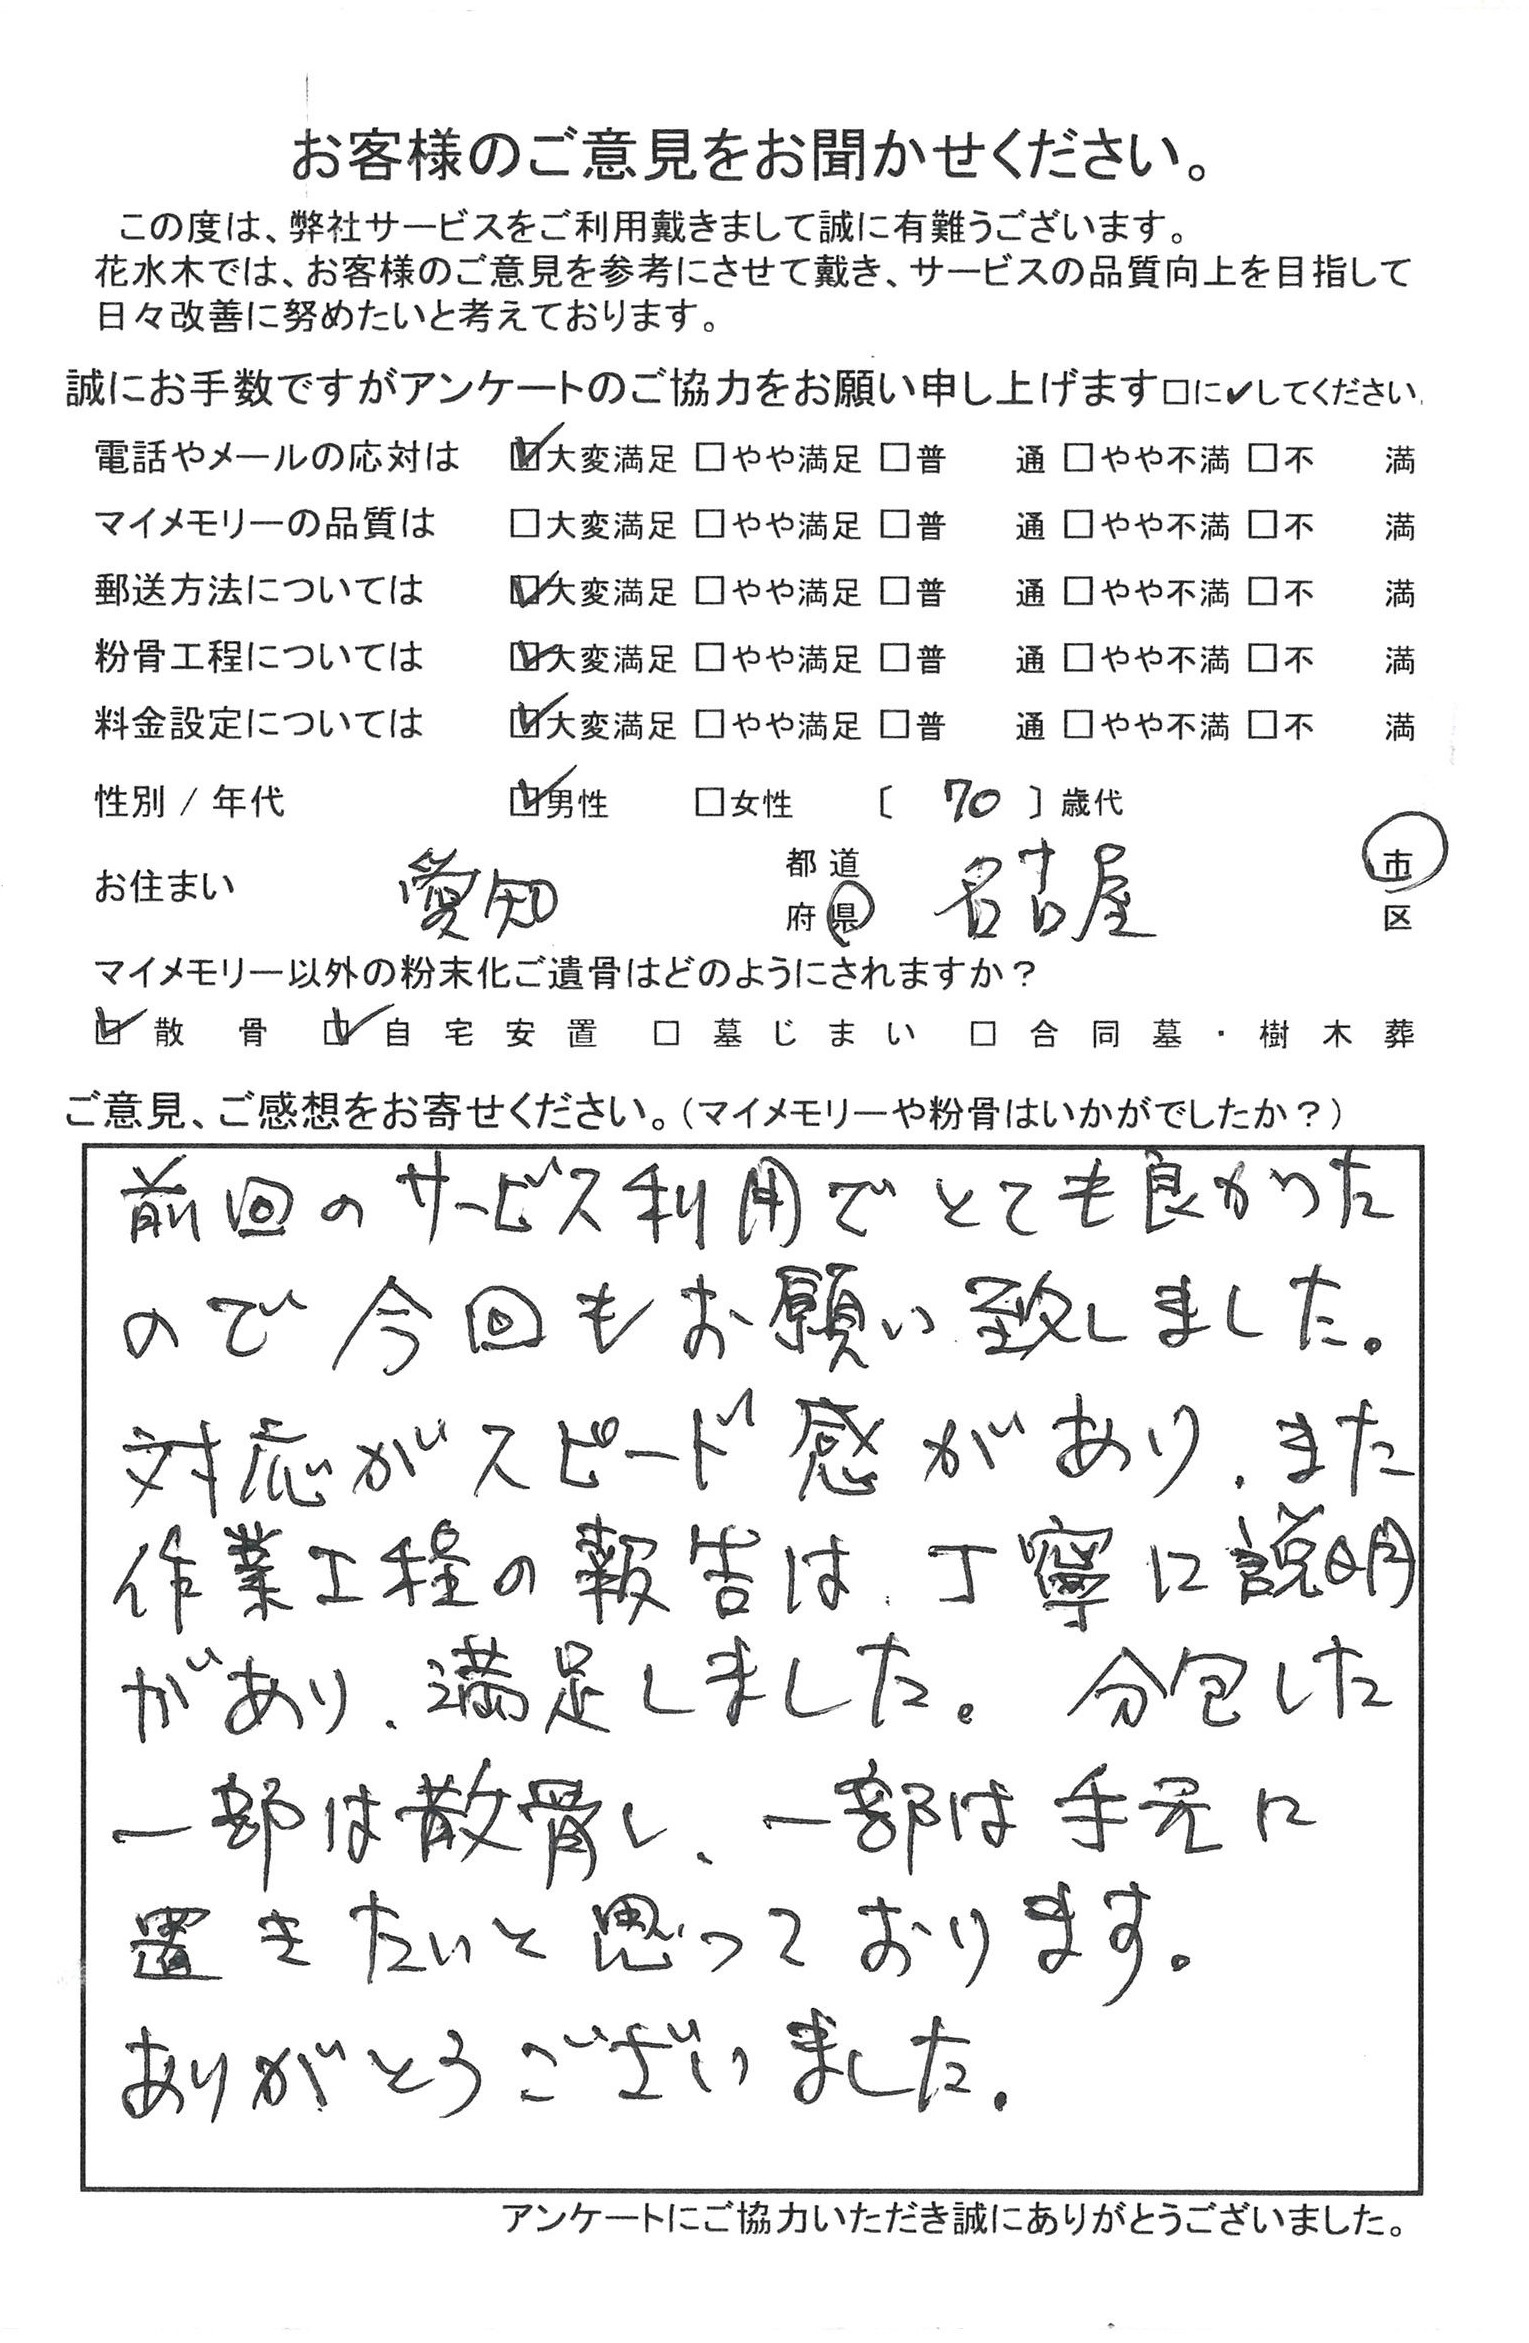 お客様のご意見をお聞かせください。
この度は、弊社サービスをご利用戴きまして誠に有難うございます。
花水木では、お客様のご意見を参考にさせて戴き、サービスの品質向上を目指して
日々改善に努めたいと考えております。
誠にお手数ですがアンケートのご協力をお願い申し上げます□に✔してください.
電話やメールの応対は ☑大変満足 □やや満足 □普 通 □やや不満 □不 満
マイメモリーの品質は □大変満足 □やや満足 □普 通 □やや不満 □不 満
郵送方法については ☑大変満足 □やや満足 □普 通 □やや不満 □不 満
粉骨工程については ☑大変満足 □やや満足 □普 通 □やや不満 □不 満
料金設定については ☑大変満足 □やや満足 □普 通 □やや不満 □不 満
性別 / 年代 ☑男性 □女性 〔 70 〕歳代
お住まい 愛知 都道府県 名古屋 市区
マイメモリー以外の粉末化ご遺骨はどのようにされますか？
☑散骨 ☑自宅安置 □墓じまい □合同墓・樹木葬
ご意見、ご感想をお寄せください。（マイメモリーや粉骨はいかがでしたか？）
前回のサービス利用でとても良かった
ので今回もお願い致しました。
対応がスピード感があり、また
作業工程の報告は、丁寧に説明
があり、満足しました。 分包した
一部は散骨し、一部は手元に
置きたいと思っております。
ありがとうございました。
アンケートにご協力いただき誠にありがとうございました。